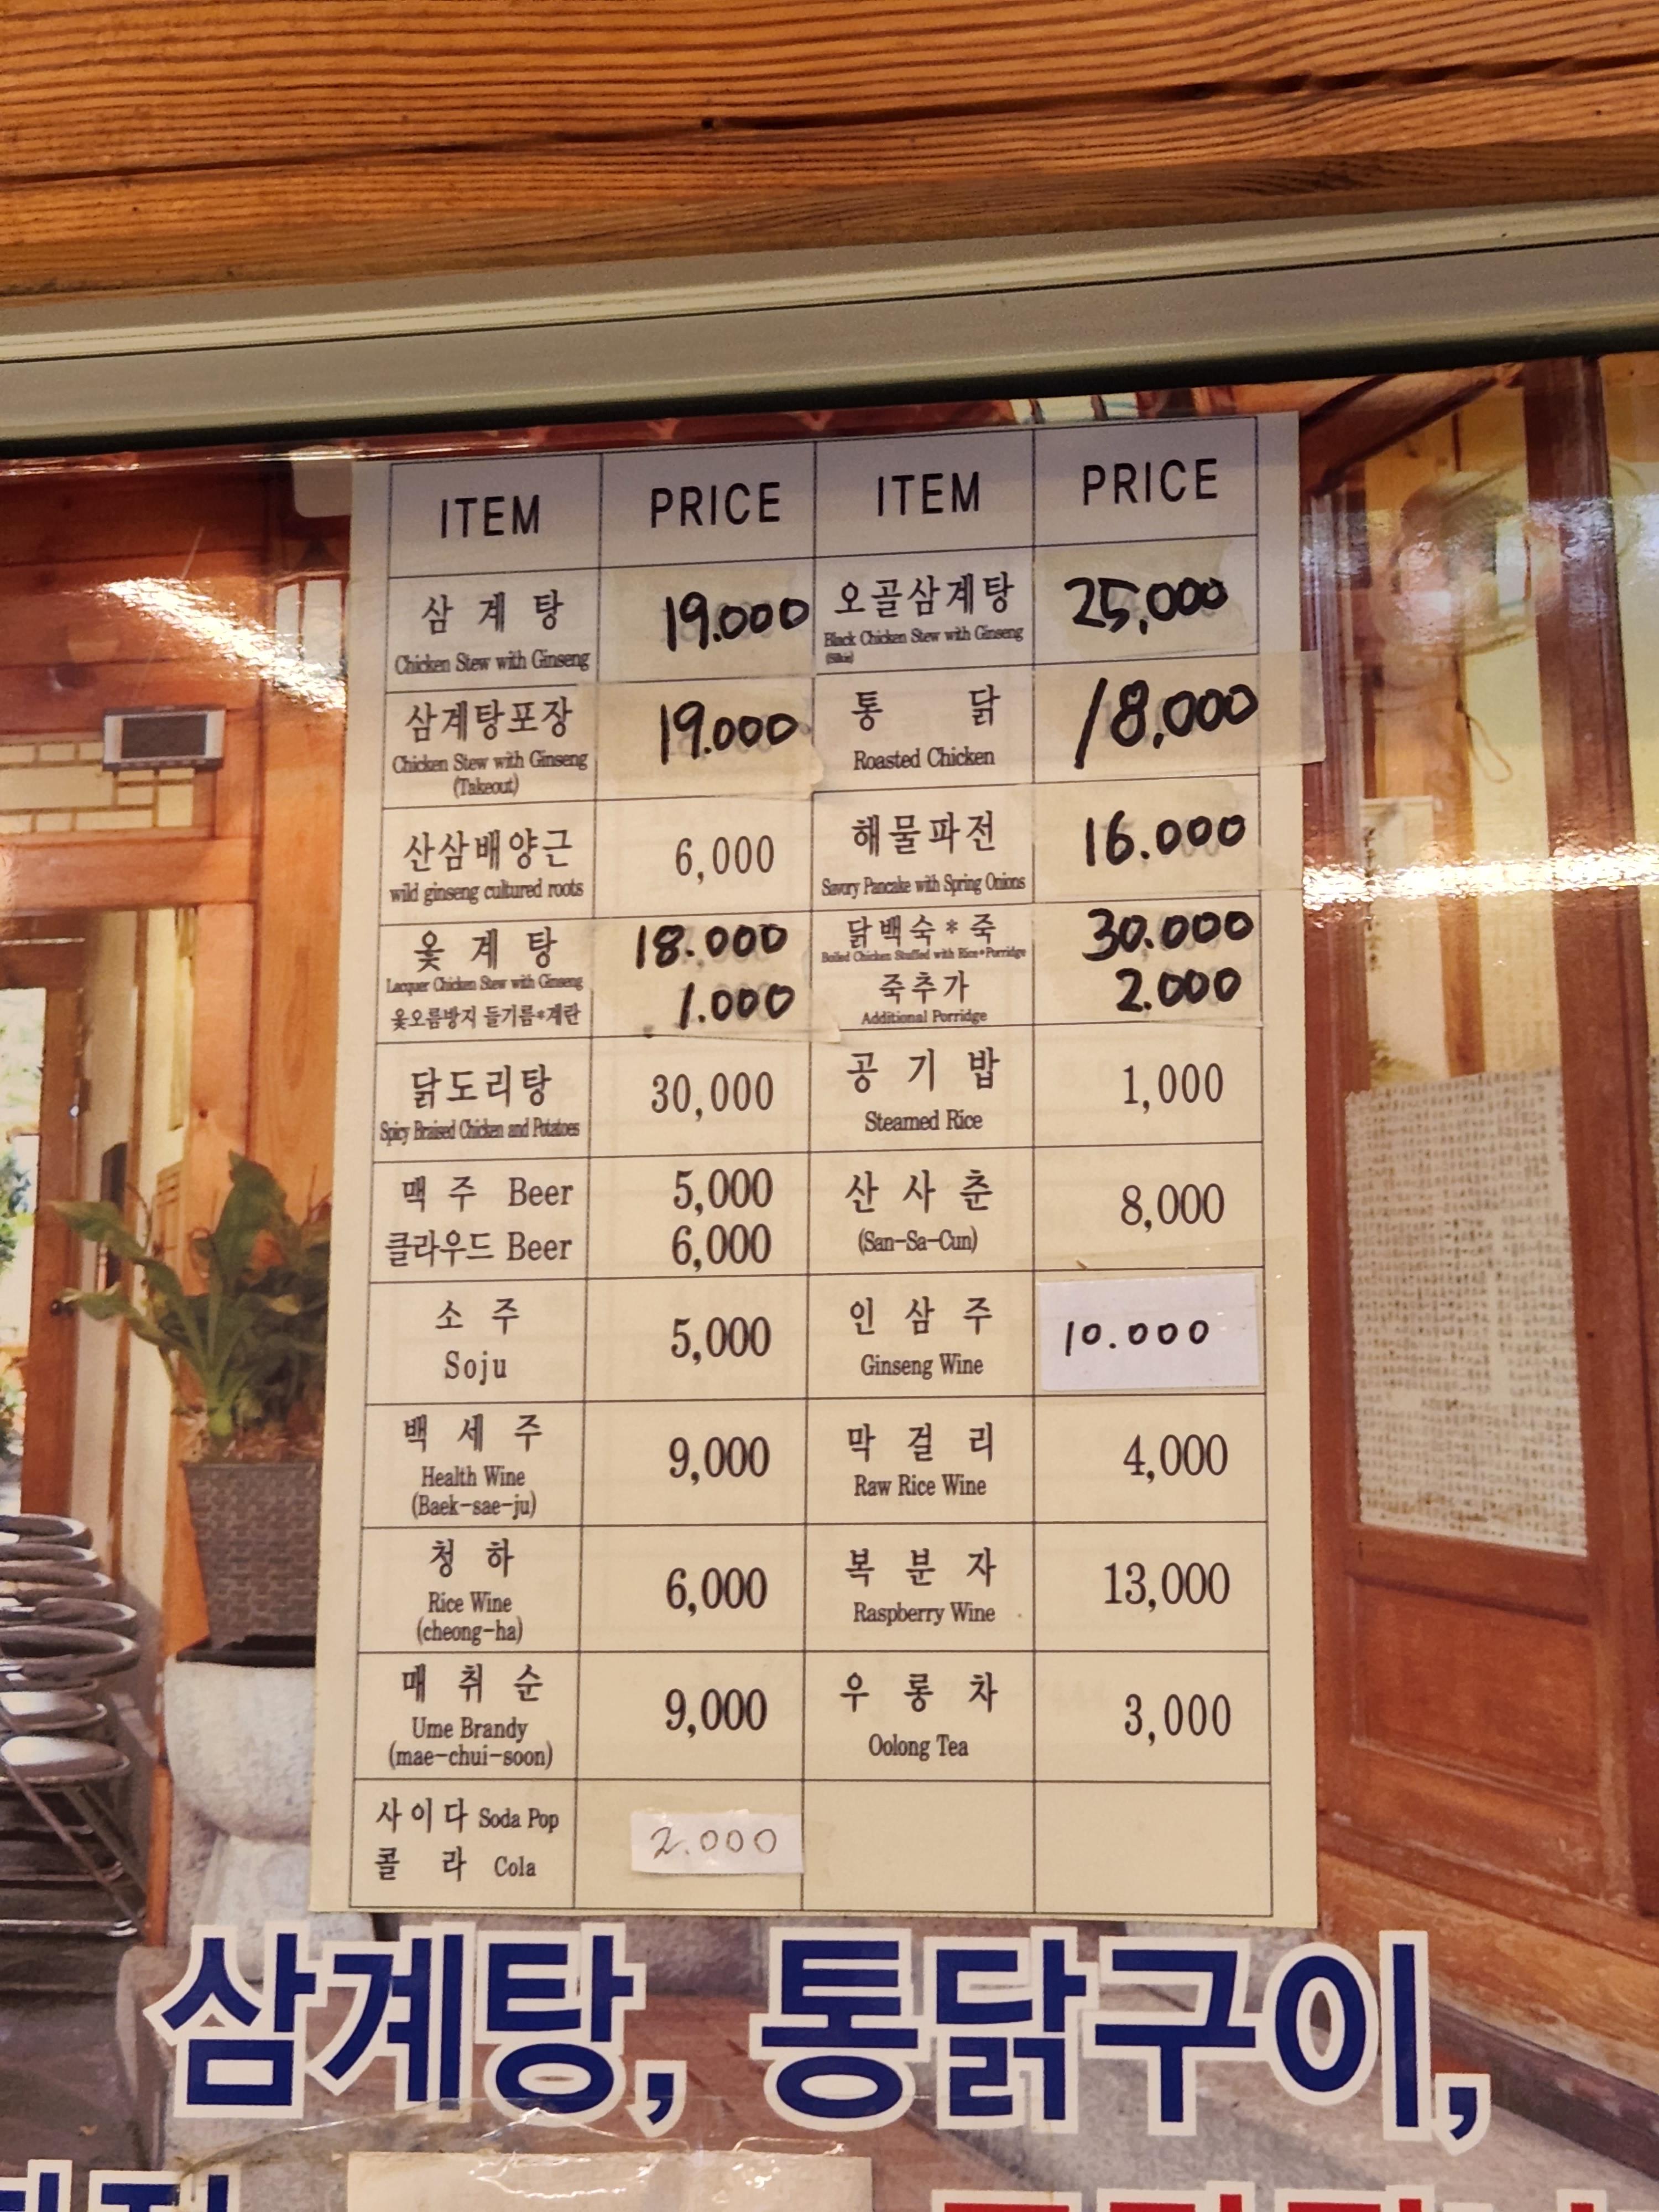 ITEM PRICE ITEM PRICE
삼 계 탕 19.000 오골삼계탕 25,000
Chicken Stew with Ginseng Black Chicken Stew with Ginseng
(Silkie)
삼계탕포장 19.000 통 닭 18,000
Chicken Stew with Ginseng Roasted Chicken
(Takeout)
산삼배양근 6,000 해물파전 16.000
wild ginseng cultured roots Savory Pancake with Spring Onions
옻 계 탕 18.000 닭백숙*죽 30.000
Lacquer Chicken Stew with Ginseng Boiled Chicken Stuffed with Rice*Porridge
옻오름방지 들기름*계란 1.000 죽추가 2.000
Additional Porridge
닭도리탕 30,000 공 기 밥 1,000
Spicy Braised Chicken and Potatoes Steamed Rice
맥 주 Beer 5,000 산 사 춘 8,000
클라우드 Beer 6,000 (San-Sa-Cun)
소 주 5,000 인 삼 주 10.000
Soju Ginseng Wine
백 세 주 9,000 막 걸 리 4,000
Health Wine Raw Rice Wine
(Baek-sae-ju)
청 하 6,000 복 분 자 13,000
Rice Wine Raspberry Wine
(cheong-ha)
매 취 순 9,000 우 롱 차 3,000
Ume Brandy Oolong Tea
(mae-chui-soon)
사이다 Soda Pop 2.000
콜 라 Cola
삼계탕, 통닭구이,